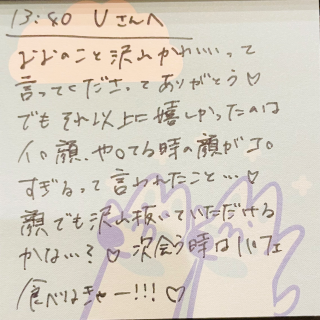 13:40 Uさんへ
ななのこと沢山かわいいって
言ってくださってありがとう♡
でもそれ以上に嬉しかったのは
イ○顔、や○てる時の顔がエ○
すぎるって言われたこと…♡
顔でも沢山抜いていただける
かな…?♡ 次会う時はパフェ
食べなきゃー!!!♡